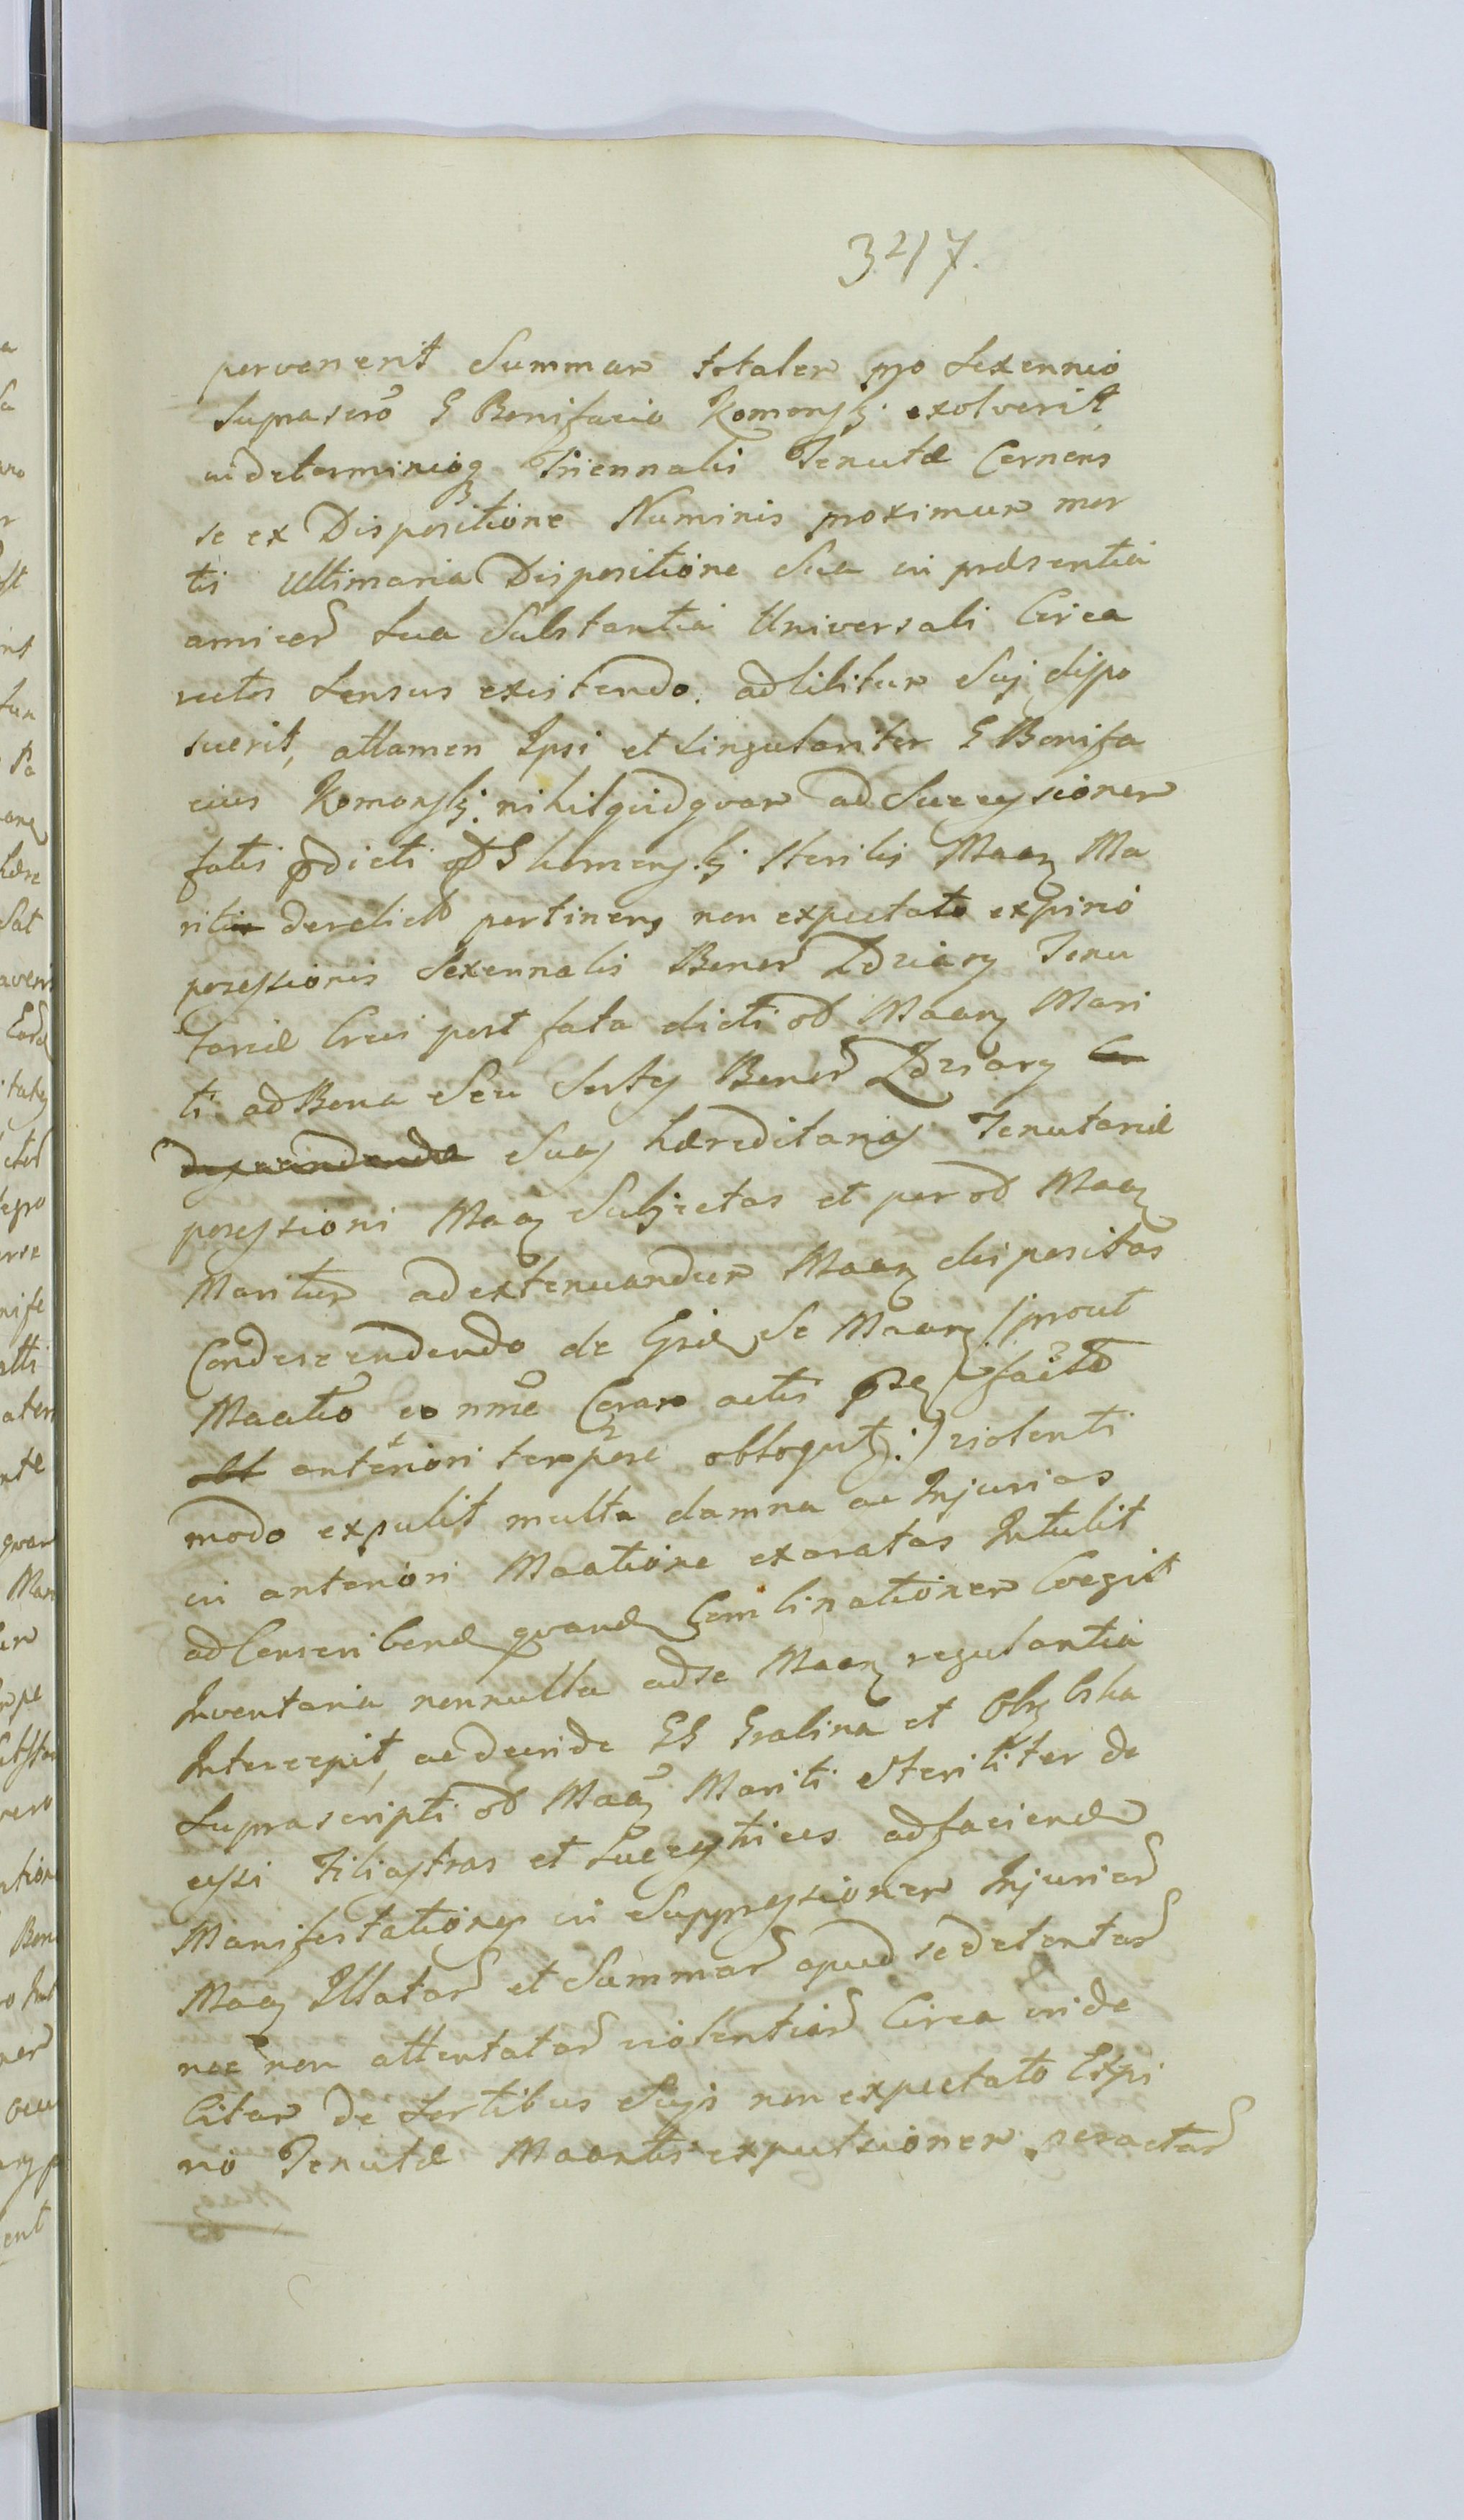 3217.
pervenerit Summam totalem pro Sexennio
suprascro G Bonifacio Komorskj exolverit
in determinioq Triennalis Tenutæ Cernens
se ex Dispositione Numinis proximum mor
tis Ultimaria Dispositione Sua in præsentia
amicor Sua Substantia Universali Circa
rectos Sensus existendo ad libitum Suj dispo
suerit, attamen Ipsi et singulariter G Bonifa
cius Komorskj nihilquidquam ad Successionem
fatis pdicti od G Komorskj Sterilis Maan Ma
riti derelicto pertinens non expectato expirio
possessionis Sexennalis Bonor Zdziary Tenu
toriæ Crui post fata dicti od Maan Mari
ti ad Bona Seu Sortes Bonor Zdziary
Suas hæreditarias Tenutariæ
possessioni Maan Subjectas et per od Maan
Maritum ad extenuandum Maan dispositas
Condescendendo de Gsie Se Maan / prout
Maatio eo nme Coram actis pse facto
anteriori tempore obloquit :/ violenti
modo expulit multa damna ac Injurias
in anteriori Maatione exaratas Intulit
ad Conscribend quand Combinationem Coegit
Inventaria nonnulla ad se Maan regulantia
Intercepit, ac deinde GG
Suprascripti od Maan Mariti Steriliter de
cessi Filiastras et Successtrices ad faciend
Manifestationes in Suppressionem Injuriar
Maan Illatar et Summar apud se detentar
nec non attentatar violentiar Circa inde
Citam de Sortibus Sujs non expectato Expi
rio Tenutæ Maantis expulsionem peractar